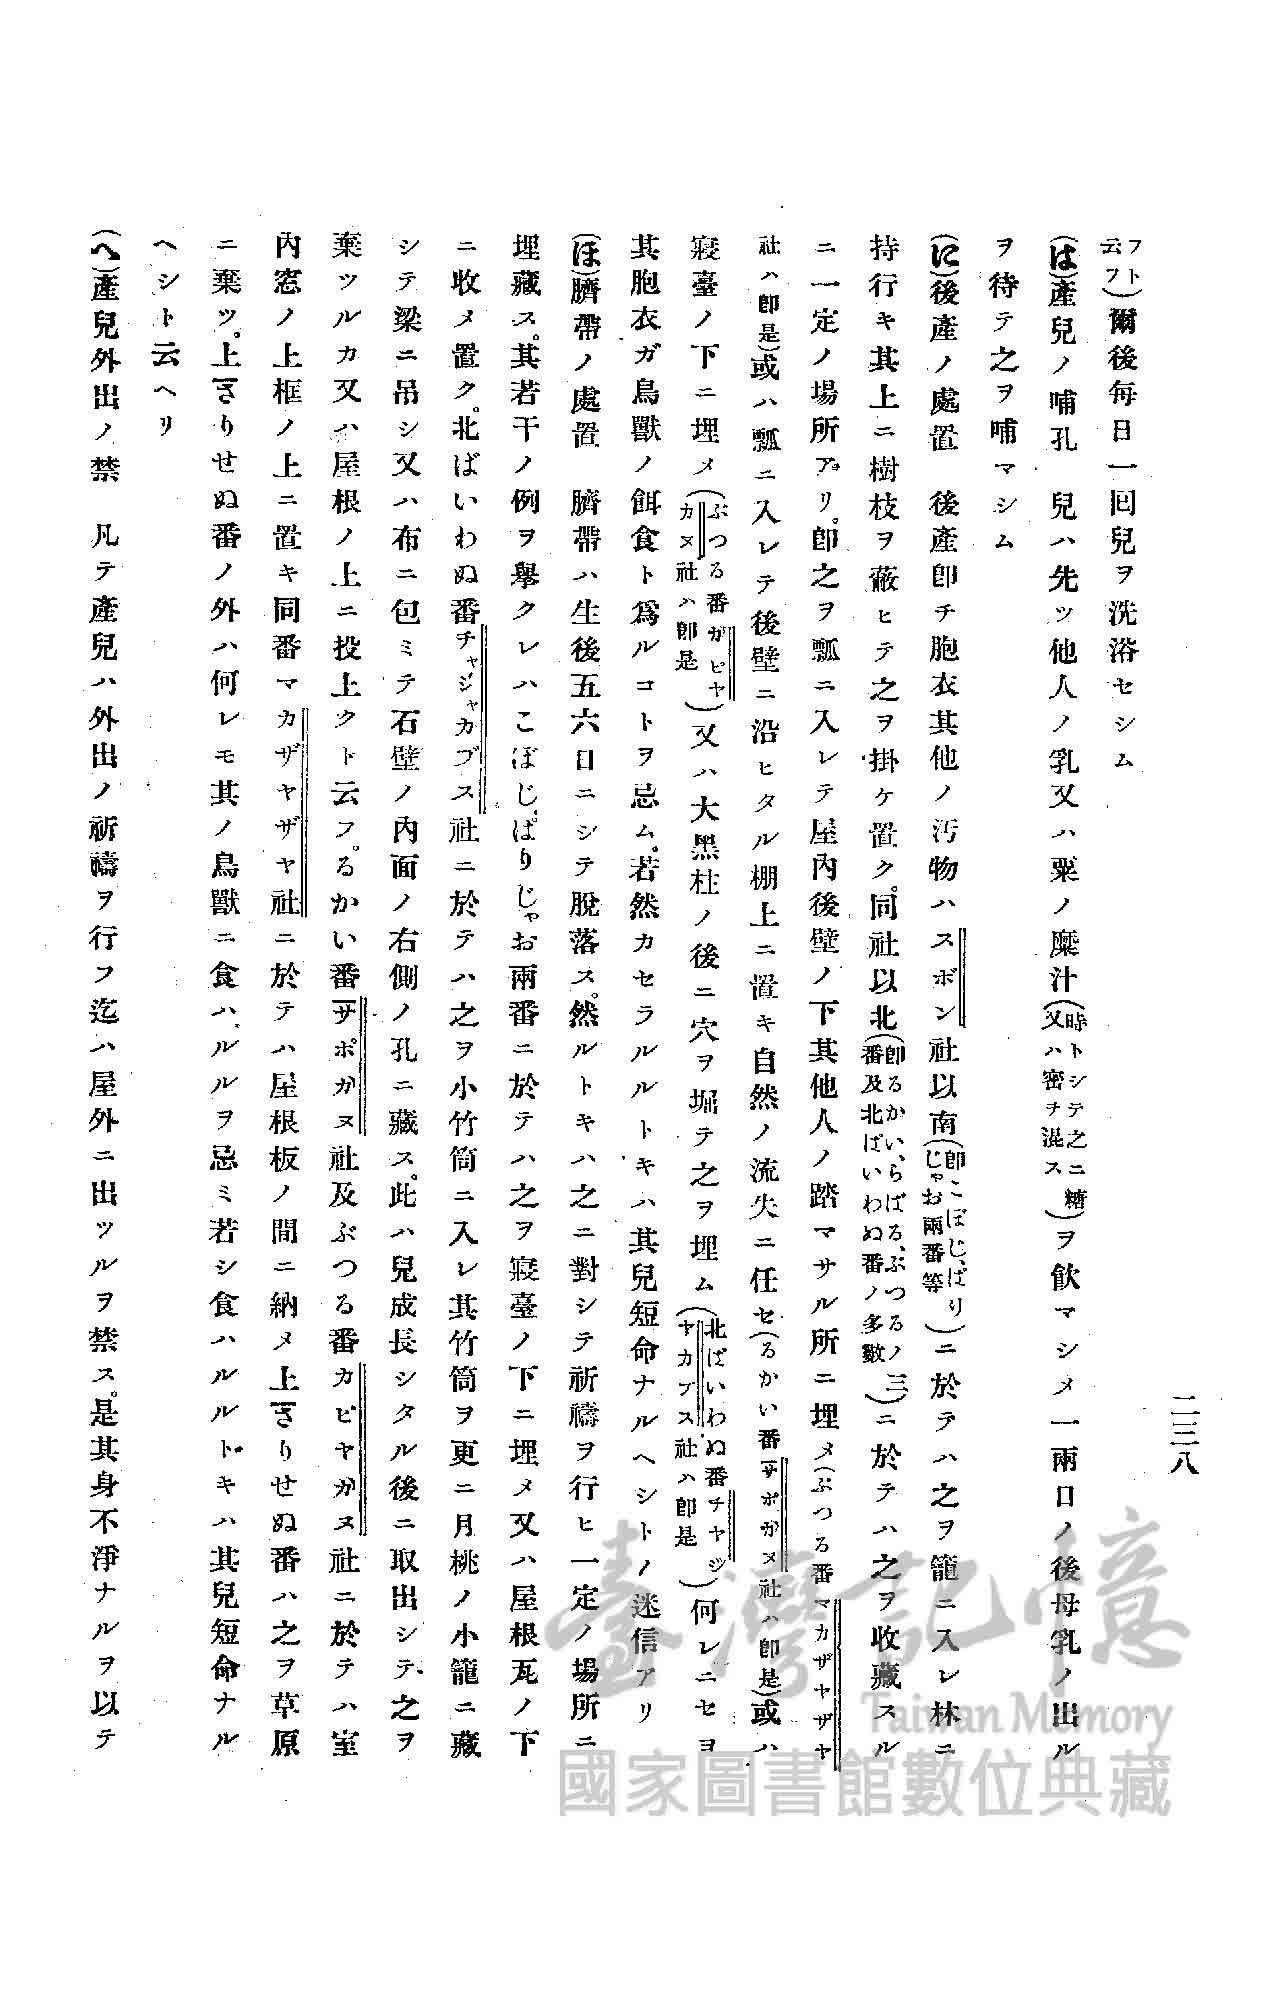 二三八
フト云フ)爾後每日一回兒ヲ洗浴セシム
(は)產兒ノ哺孔 兒ハ先ツ他人ノ乳又ハ粟ノ糜汁(時トシテ之ニ糖又ハ密チ混ス)ヲ飮マシメ一兩日ノ後母乳ノ出ル
ヲ待テ之ヲ哺マシム
(に)後產ノ處置 後產卽チ胞衣其他ノ汚物ハスボン社以南(卽こぼじ、ぱりじゃお兩番等)ニ於テハ之ヲ籠ニ入レ林ニ
持行キ其上ニ樹枝ヲ蔽ヒテ之ヲ掛ケ置ク。同社以北(卽るかい、らばる、ぶつるノ三番及北ばいわぬ番ノ多數)ニ於テハ之ヲ收藏スル
ニ一定ノ場所アリ。卽之ヲ瓢ニ入レテ屋內後壁ノ下其他人ノ踏マサル所ニ埋メ(ぶつる番マカザヤザヤ
社ハ卽是)或ハ瓢ニ入レテ後壁ニ沿ヒタル棚上ニ置キ自然ノ流失ニ任セ(るかい番サポガヌ社ハ卽是)或ハ
寢臺ノ下ニ埋メ(ぶつる番カピヤカヌ社ハ卽是)又ハ大黑柱ノ後ニ穴ヲ堀テ之ヲ埋ム(北ばいわぬ番チャジヤカブス社ハ卽是)何レニセヨ
其胞衣ガ鳥獸ノ餌食ト爲ルコトヲ忌ム。若然カセラルルトキハ其兒短命ナルヘシトノ迷信アリ
(ほ)臍帶ノ處置 臍帶ハ生後五六日ニシテ脫落ス。然ルトキハ之ニ對シテ祈禱ヲ行ヒ一定ノ場所ニ
埋藏ス。其若干ノ例ヲ擧クレハこぼじ、ぱりじゃお兩番ニ於テハ之ヲ寢臺ノ下ニ埋メ又ハ屋根瓦ノ下
ニ收メ置ク。北ばいわぬ番チャジャカブス社ニ於テハ之ヲ小竹筒ニ入レ其竹筒ヲ更ニ月桃ノ小籠ニ藏
シテ梁ニ吊シ又ハ布ニ包ミテ石壁ノ內面ノ右側ノ孔ニ藏ス。此ハ兒成長シタル後ニ取出シテ之ヲ
棄ツルカ又ハ屋根ノ上ニ投上クト云フ。るかい番サポガヌ社及ぶつる番カピヤガヌ社ニ於テハ室
內窓ノ上框ノ上ニ置キ同番マカザヤザヤ社ニ於テハ屋根板ノ間ニ納メ上ぎりせぬ番ハ之ヲ草原
ニ棄ツ。上ぎりせぬ番ノ外ハ何レモ其ノ鳥獸ニ食ハルルヲ忌ミ若シ食ハルルトキハ其兒短命ナル
ヘシト云ヘリ
(へ)產兒外出ノ禁 凡テ產兒ハ外出ノ祈禱ヲ行フ迄ハ屋外ニ出ツルヲ禁ス。是其身不淨ナルヲ以テ
臺灣記憶
Taiwan Memory
國家圖書館數位典藏